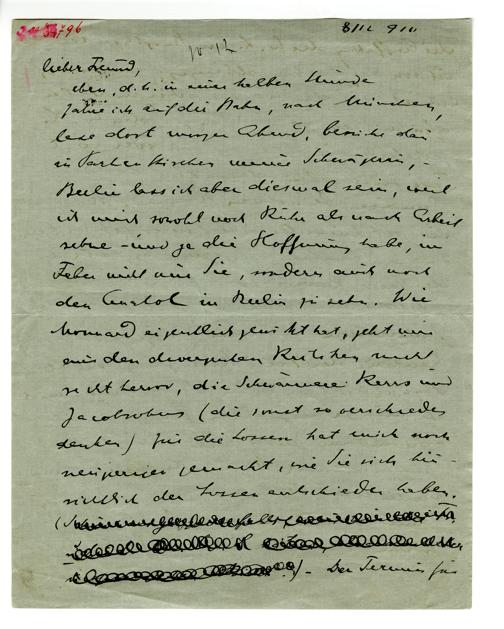 8/12 910
10.12
lieber Freund,
eben, d.h. in einer halben Stunde
fahre ich auf die Bahn, nach München,
lese dort morgen Abend, besuche dann
in Partenkirchen meine Schwägerin, –
Berlin lass ich aber diesmal sein, weil
ich mich sowohl nach Ruhe als nach Arbeit
sehne – und ja die Hoffnung habe, im
Feber nicht nur Sie, sondern auch noch
den Anatol in Berlin zu sehn. Wie
eigentlich gewirkt hat, geht mir
aus den divergenten Kritiken nicht
recht hervor, die Schwärmerei Kerrs und
Jacobsohns (die sonst so verschieden
denken) für die Lossen hat mich noch
neugieriger gemacht, wie Sie sich hin-
sichtlich der Lossen entschieden haben.
– Der Termin für